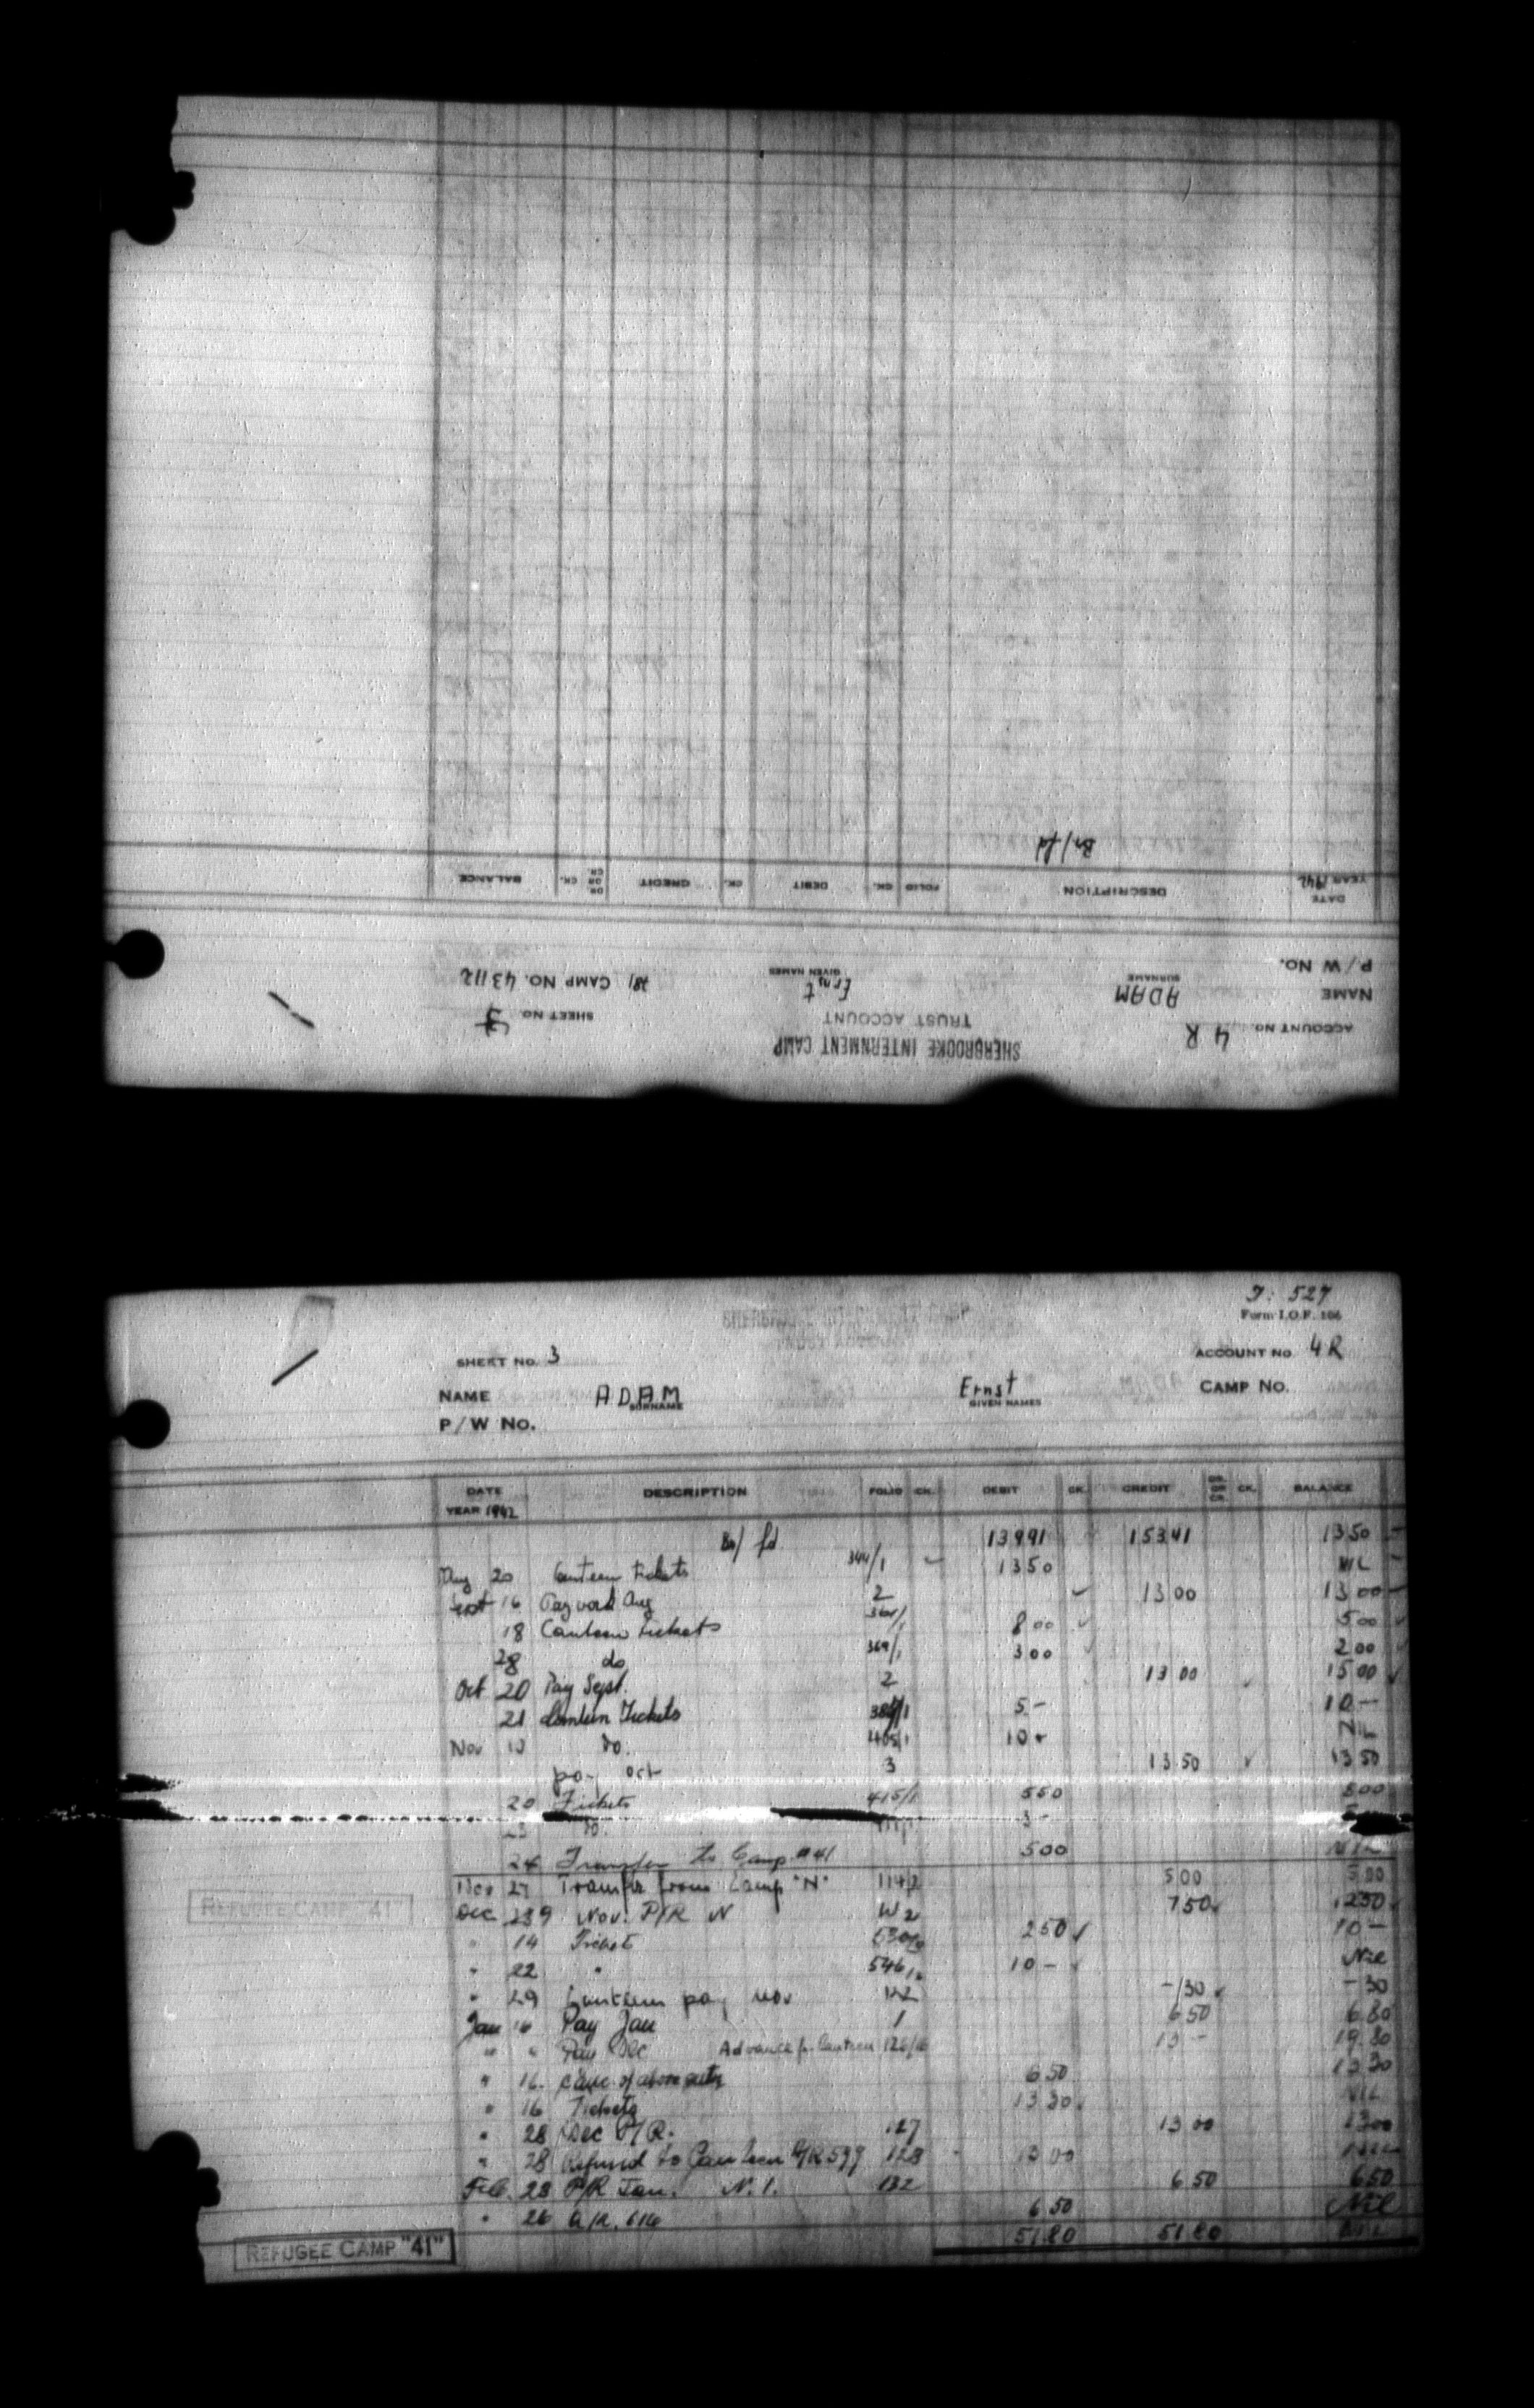 SHERBROOKE INTERNMENT CAMP
TRUST ACCOUNT
ACCOUNT NO. 4 R
SHEET NO.
NAME ADAM Ernst CAMP NO. 43112
SURNAME GIVEN NAMES
P/W NO.
DATE DESCRIPTION FOLIO CK. DEBIT CK. CREDIT DR. OR CR. CK. BALANCE
YEAR 1942
Br/fd
Form I.O.F. 106
SHEET NO. 3 ACCOUNT NO. 4 R
NAME ADAM Ernst CAMP NO.
SURNAME GIVEN NAMES
P/W NO.
DATE DESCRIPTION FOLIO CK. DEBIT CK. CREDIT DR. OR CR. CK. BALANCE
YEAR 1942
fd 139 91 153 41 13 50
Aug 20 Canteen tickets 344/1 13 50 NIL
Sept 16 Pay Aug 2 13 00 13 00
18 Canteen tickets 8 00 5 00
28 do 369/1 3 00 2 00
Oct 20 Pay Sept. 2 13 00 15 00
21 Canteen Tickets 5 - 10 -
Nov 10 do. 405/1 10 - NIL
pay oct 3 13 50 13 50
20 Tickets 415/1 5 50 8 00
23 do. 3 -
24 Transfer to Camp #41 5 00 NIL
27 Transfer from Camp "N" 114/2 5 00 5 00
REFUGEE CAMP "41"
Dec Nov. P/R N 7 50 12 50
" 14 Ticket 2 50 10 -
" 22 " 546 10 - Nil
" 29 Canteen pay nov -/30 -30
Jan 16 Pay Jan 1 6 50 6 80
" " Pay Dec Advance Canteen 13 - 19.80
" 16. 6 50 13 30
" 16 Tickets 13 30 NIL
" 28 Dec P/R. 127 13 00 13 00
" 28 Refund to Canteen 128 13 00
Feb. 28 P/R Jan. N. 1. 132 6 50 6 50
" 26 6 50 Nil
51.80 51 80
REFUGEE CAMP "41"